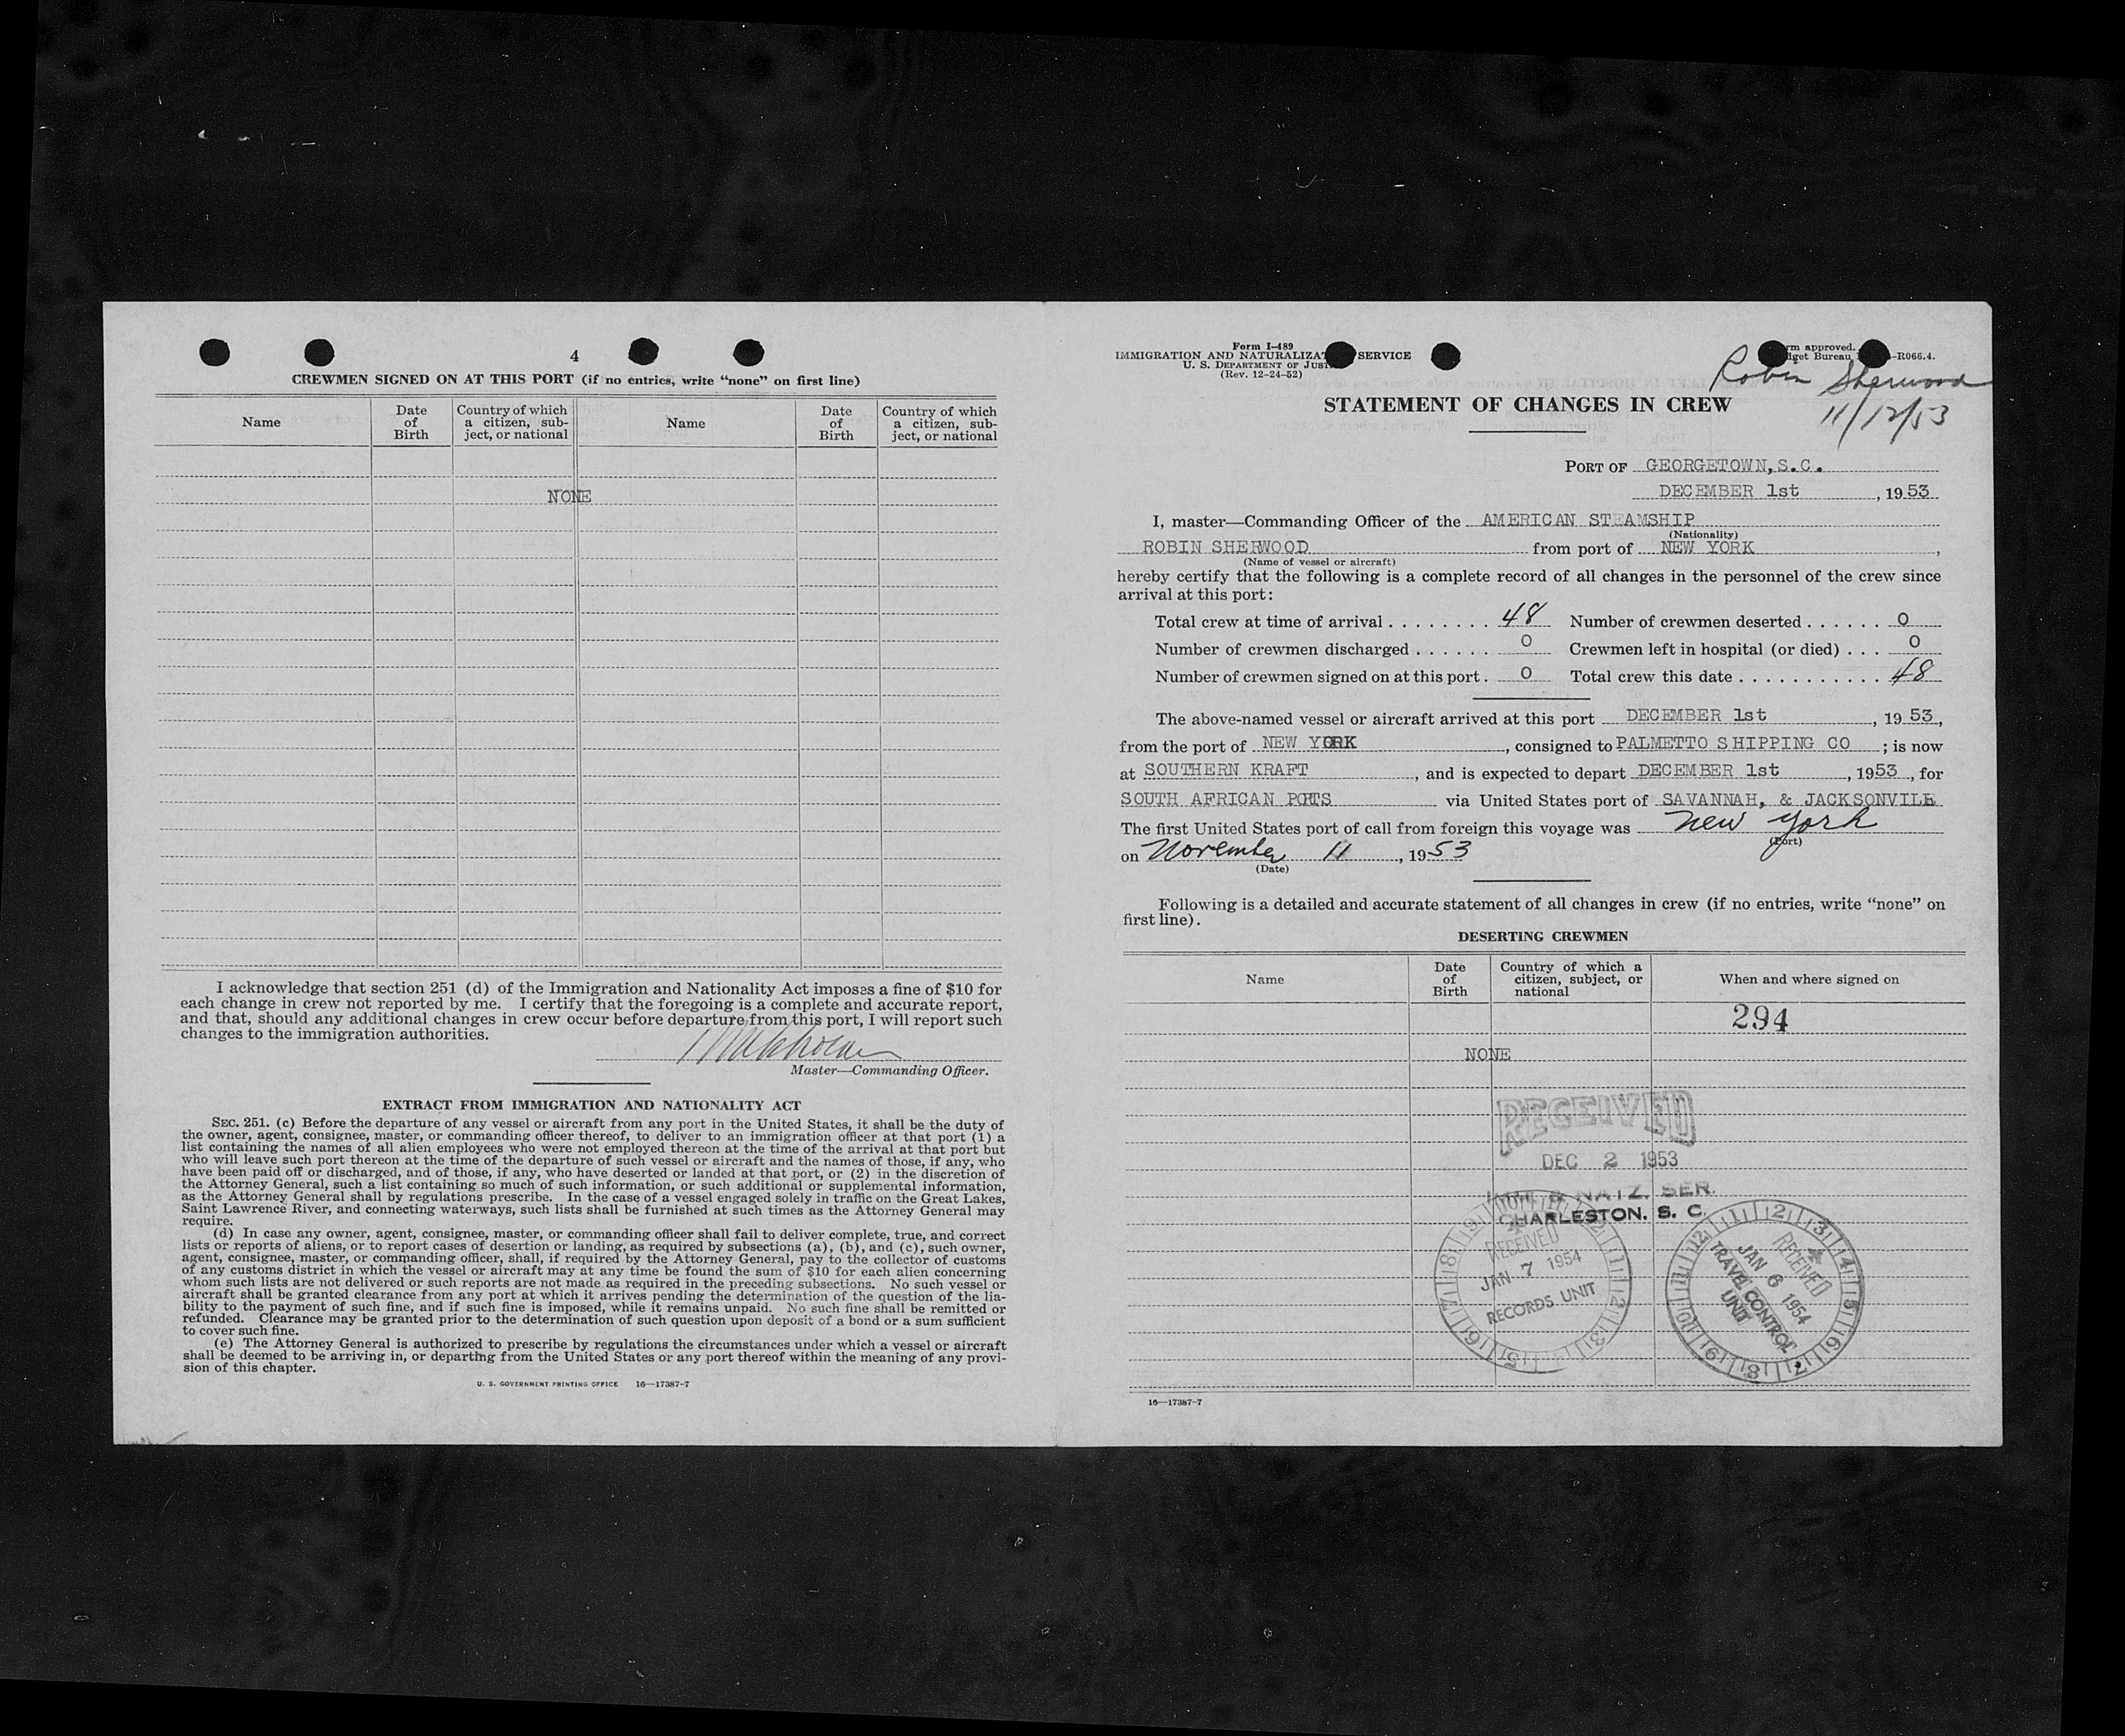 4
CREWMEN SIGNED ON AT THIS PORT (if no entries, write “none” on first line)
Name Date of Birth Country of which a citizen, sub-ject, or national Name Date of Birth Country of which a citizen, sub-ject, or national
NONE
I acknowledge that section 251 (d) of the Immigration and Nationality Act imposes a fine of $10 for
each change in crew not reported by me. I certify that the foregoing is a complete and accurate report,
and that, should any additional changes in crew occur before departure from this port, I will report such
changes to the immigration authorities.
Master—Commanding Officer.
EXTRACT FROM IMMIGRATION AND NATIONALITY ACT
SEC. 251. (c) Before the departure of any vessel or aircraft from any port in the United States, it shall be the duty of
the owner, agent, consignee, master, or commanding officer thereof, to deliver to an immigration officer at that port (1) a
list containing the names of all alien employees who were not employed thereon at the time of the arrival at that port but
who will leave such port thereon at the time of the departure of such vessel or aircraft and the names of those, if any, who
have been paid off or discharged, and of those, if any, who have deserted or landed at that port, or (2) in the discretion of
the Attorney General, such a list containing so much of such information, or such additional or supplemental information,
as the Attorney General shall by regulations prescribe. In the case of a vessel engaged solely in traffic on the Great Lakes,
Saint Lawrence River, and connecting waterways, such lists shall be furnished at such times as the Attorney General may
require.
(d) In case any owner, agent, consignee, master, or commanding officer shall fail to deliver complete, true, and correct
lists or reports of aliens, or to report cases of desertion or landing, as required by subsections (a), (b), and (c), such owner,
agent, consignee, master, or commanding officer, shall, if required by the Attorney General, pay to the collector of customs
of any customs district in which the vessel or aircraft may at any time be found the sum of $10 for each alien concerning
whom such lists are not delivered or such reports are not made as required in the preceding subsections. No such vessel or
aircraft shall be granted clearance from any port at which it arrives pending the determination of the question of the lia-
bility to the payment of such fine, and if such fine is imposed, while it remains unpaid. No such fine shall be remitted or
refunded. Clearance may be granted prior to the determination of such question upon deposit of a bond or a sum sufficient
to cover such fine.
(e) The Attorney General is authorized to prescribe by regulations the circumstances under which a vessel or aircraft
shall be deemed to be arriving in, or departing from the United States or any port thereof within the meaning of any provi-
sion of this chapter.
U. S. GOVERNMENT PRINTING OFFICE 16—17387-7
Form I-489
IMMIGRATION AND NATURALIZAT SERVICE
U. S. DEPARTMENT OF JUST
(Rev. 12-24-52)
rm approved.
get Bureau -R066.4.
Robin Sherwood
11/12/53
STATEMENT OF CHANGES IN CREW
PORT OF GEORGETOWN, S.C.
DECEMBER 1st, 1953
I, master—Commanding Officer of the AMERICAN STEAMSHIP
(Nationality)
ROBIN SHERWOOD from port of NEW YORK,
(Name of vessel or aircraft)
hereby certify that the following is a complete record of all changes in the personnel of the crew since
arrival at this port:
Total crew at time of arrival . . . . . . . . 48 Number of crewmen deserted . . . . . . 0
Number of crewmen discharged . . . . . . 0 Crewmen left in hospital (or died) . . . 0
Number of crewmen signed on at this port . 0 Total crew this date . . . . . . . . . . . 48
The above-named vessel or aircraft arrived at this port DECEMBER 1st, 1953,
from the port of NEW YORK, consigned to PALMETTO SHIPPING CO ; is now
at SOUTHERN KRAFT, and is expected to depart DECEMBER 1st, 1953, for
SOUTH AFRICAN PORTS via United States port of SAVANNAH, & JACKSONVILE
The first United States port of call from foreign this voyage was New York
(Port)
on November 11, 1953
(Date)
Following is a detailed and accurate statement of all changes in crew (if no entries, write “none” on
first line).
DESERTING CREWMEN
Name Date of Birth Country of which a citizen, subject, or national When and where signed on
294
NONE
RECEIVED
DEC 2 1953
IMM. & NATZ. SER.
CHARLESTON, S. C.
RECEIVED
JAN 7 1954
RECORDS UNIT
RECEIVED
JAN 6 1954
TRAVEL CONTROL
UNIT
16—17387-7